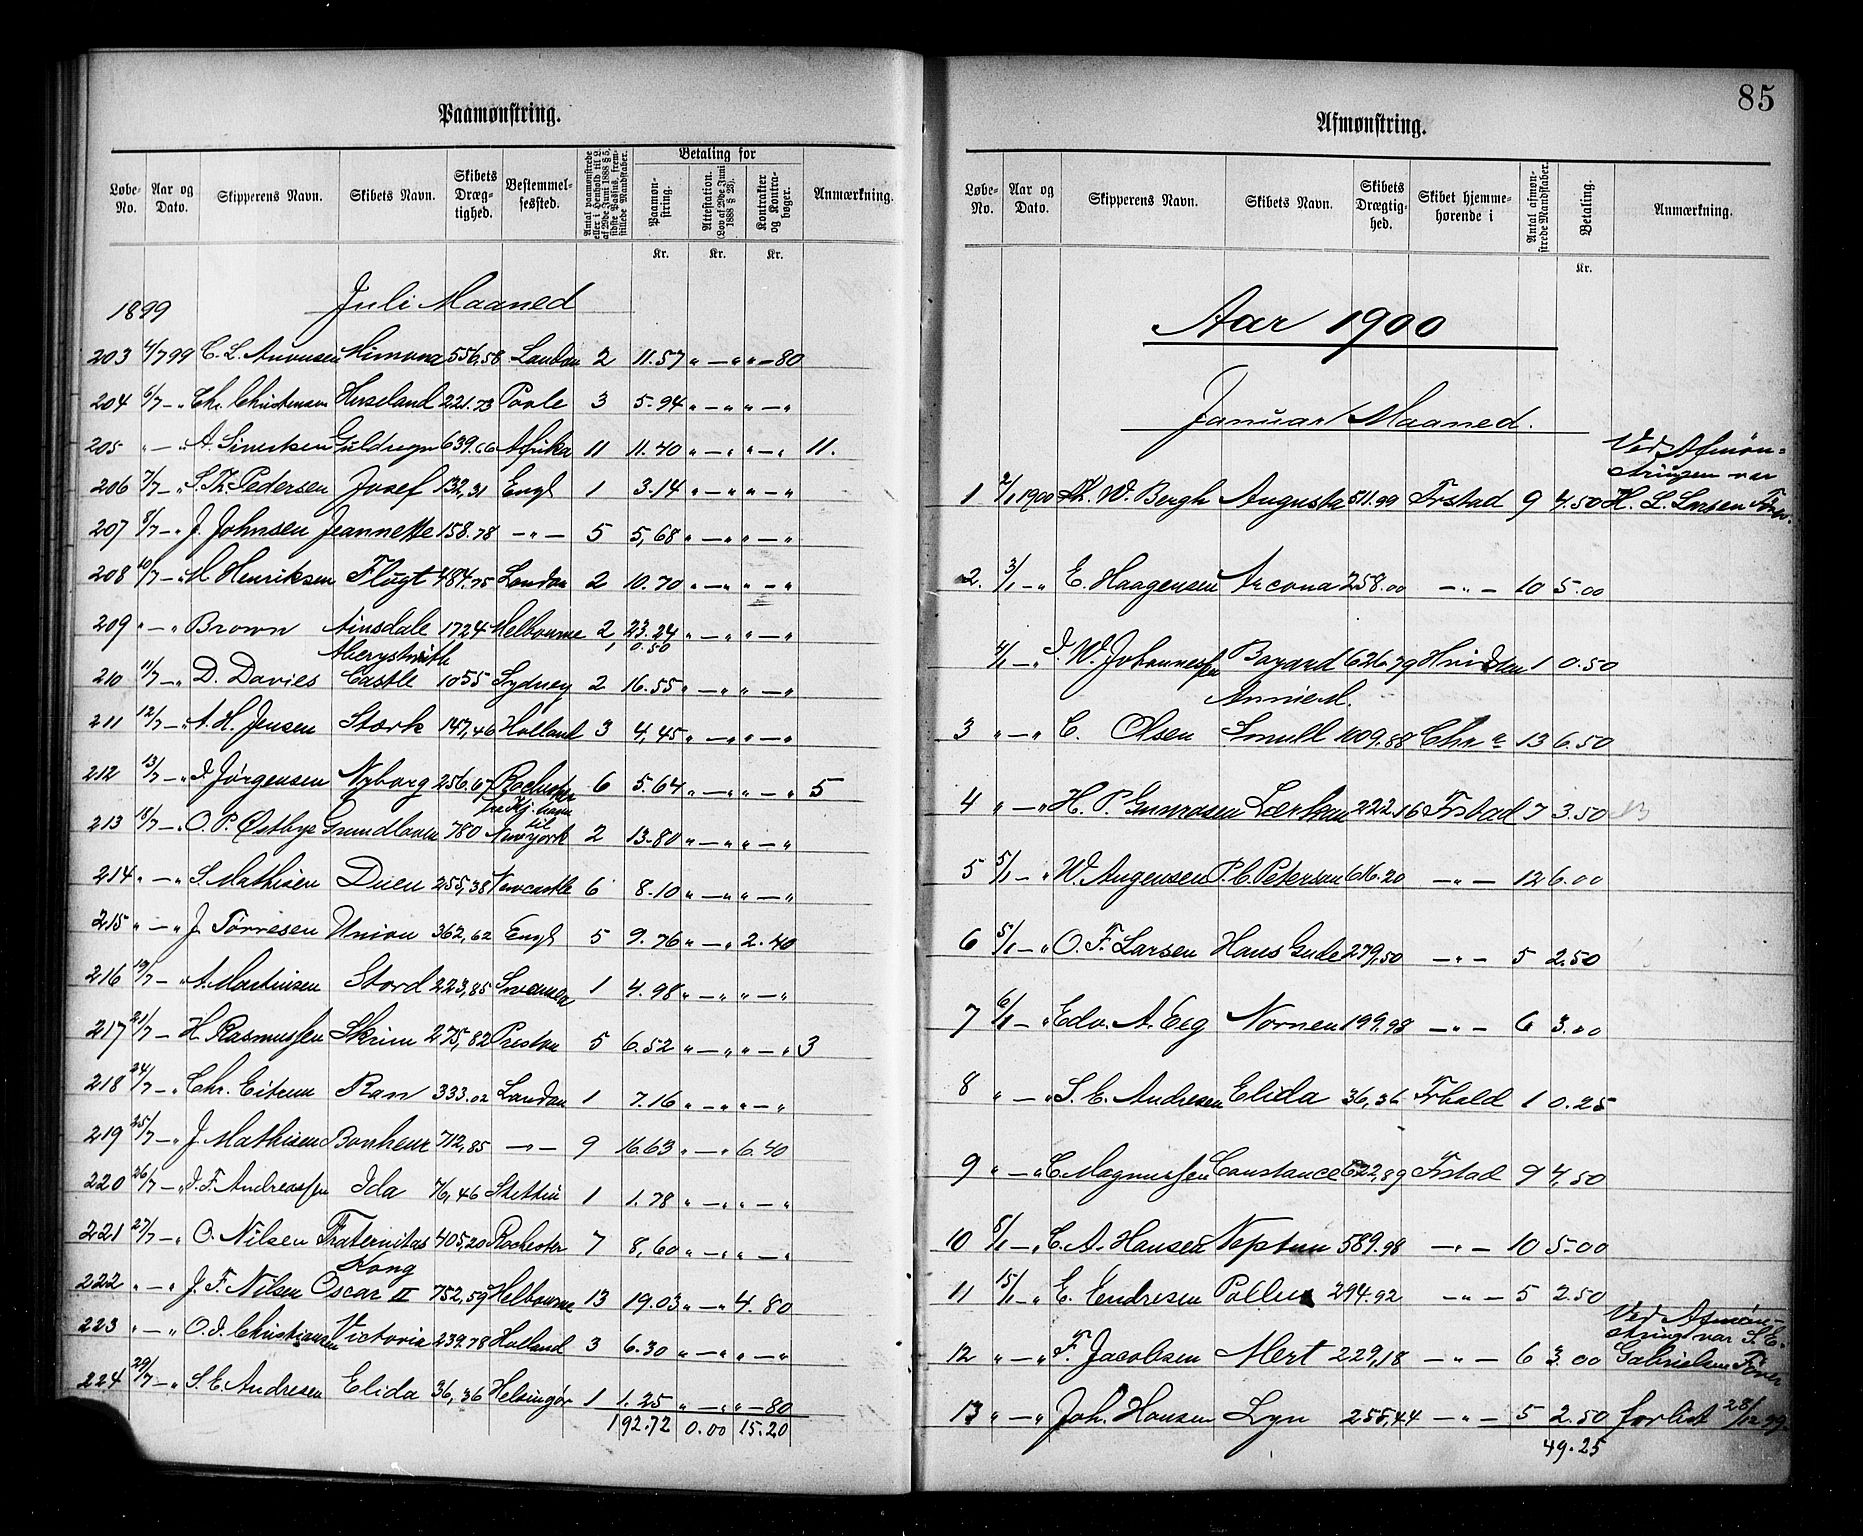 Paamønstring.
Løbe-No. Aar og Dato. Skipperens Navn. Skibets Navn. Skibets Drægtighed. Bestemmelsessted. Antal paamønstrede eller i Henhold til Lov af 29de Juni 1888 § 5, sidste Passus, fremstillede Mandskaber. Betaling for Paamønstring. Attestation. (Lov af 29de Juni 1888 § 23). Kontrakter og Kontrabøger. Anmærkning.
Kr. Kr. Kr.
1899 Juli Maaned
203 4/7 99 C. L. Mimona 556,58 London 2 11.57 " — " " — 80
204 6/7 — " Chr. Christensen Huseland 221.73 Poole 3 5.94 " — " " — "
205 " — " A. Sivertsen Guldregn 639.66 Afrika 11 11.40 " — " " — " 11.
206 7/7 — " S. Th. Pedersen Josef 132,31 Engl 1 3.14 " — " " — "
207 8/7 — " J. Johnsen Jeannette 158.78 — " — 5 5,68 " — " " — "
208 10/7 — " M. Henriksen Flugt 484.75 London 2 10.70 " — " " — "
209 " — " Brown Ainsdale 1724 Melbourne 2 23.24 " — " " — "
0.50
210 11/7 — " D. Davies Aberystwith Castle 1055 Sydney 2 16.55 " — " " — "
211 12/7 — " A. H. Jensen Stærk 147,46 Holland 3 4,45 " — " " — "
212 13/7 — " J. Jørgensen Nyborg 256.67 Rochester 6 5.64 " — " " — " 5
213 18/7 — " O. P. Østbye Grundloven 780 fra Kj.havn til Newyork 2 13.80 " — " " — "
214 " — " S. Mathisen Duen 255,38 Newcastle 6 8.10 " — " " — "
215 " — " J. Tørresen Union 362,62 Engl 5 9.76 " — " 2.40
216 19/7 — " A. Martinsen Stord 223,85 Swansea 1 4.98 " — " " — "
217 21/7 — " H. Rasmussen Skrim 275,82 Preston 5 6.52 " — " " — " 3
218 24/7 — " Chr. Eitrem Ran 333.02 London 1 7.16 " — " " — "
219 25/7 — " J. Mathisen Bonheur 712,85 — " — 9 16.63 " — " 6.40
220 26/7 — " J. F. Andreassen Ida 76,46 Stettin 1 1.78 " — " " — "
221 27/7 — " O. Nilsen Fraternitas 405,20 Rochester 7 8,60 " — " " — "
222 " — " J. F. Nilsen Kong Oscar II 752,59 Melbourne 13 19.03 " — " 4.80
223 " — " O. J. Christiansen Victoria 239.78 Holland 3 6.30 " — " " — "
224 29/7 — " S. E. Andresen Elida 36,36 Helsingør 1 1.25 " — " " — 80
192.72 0.00 15.20
85
Afmønstring.
Løbe-No. Aar og Dato. Skipperens Navn. Skibets Navn. Skibets Drægtighed. Skibet hjemmehørende i Antal afmønstrede Mandskaber. Betaling. Anmærkning.
Kr.
Aar 1900
Januar Maaned.
1 2/1 1900 W. Bergh Augusta 511.99 Frstad 9 4.50 Ved Afmønstringen var H. L. Larsen Fører.
2. 3/1 — " E. Haagensen Arcona 258.00 — " — 10 5.00
4/1 — " J. W. Johannessen Bayard 626.79 Hvidsten 1 0.50
3 " — " C. Olsen Annie M. Smull 1009.88 Chr a 13 6.50
4 " — " H. P. Gunrosen Lærken 222,16 Frstad 7 3.50
5 5/1 — " W. Augensen P. C. Peterson 616.20 — " — 12 6.00
6 5/1 — " O. F. Larsen Hans Gude 279,50 — " — 5 2.50
7 6/1 — " Edv. A. Eeg Nornen 199.98 — " — 6 3.00
8 " — " S. E. Andresen Elida 36,36 Frhald 1 0.25
9 " — " C. Magnussen Constance 622,89 Frstad 9 4,50
10 8/1 — " C. A. Hansen Neptun 589.98 — " — 10 5.00
11 15/1 — " E. Endresen Pollux 294.92 — " — 5 2.50
12 " — " F. Jacobsen Alert 229,18 — " — 6 3.00 Ved Afmønstring var S. E. Gabrielsen Fører
13 " — " Joh. Hansen Lyn 255,44 — " — 5 2.50 forlist 28/12 99.
49.25